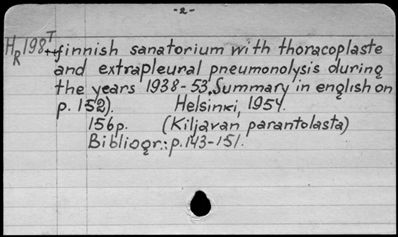 -2-
HR198T finnish sanatorium with thoracoplaste
and extrapleural pneumonolysis during
the years 1938-53. Summary in english on
p. 152). Helsinki, 1954.
156p. (Kiljavan parantolasta)
Bibliogr.: p. 143-151.